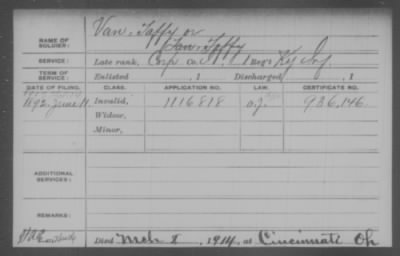 Van, Taffy or
NAME OF SOLDIER:
Taw, Taffy
SERVICE: Late rank, Corp Co. 1 Reg't Ky Inf
TERM OF SERVICE: Enlisted , 1 Discharged , 1
DATE OF FILING. CLASS. APPLICATION NO. LAW. CERTIFICATE NO.
1892, June 11. Invalid, 1116818 936,146
Widow,
Minor,
ADDITIONAL SERVICES:
REMARKS:
Died Mch 8, 1914, at Cincinnate Oh